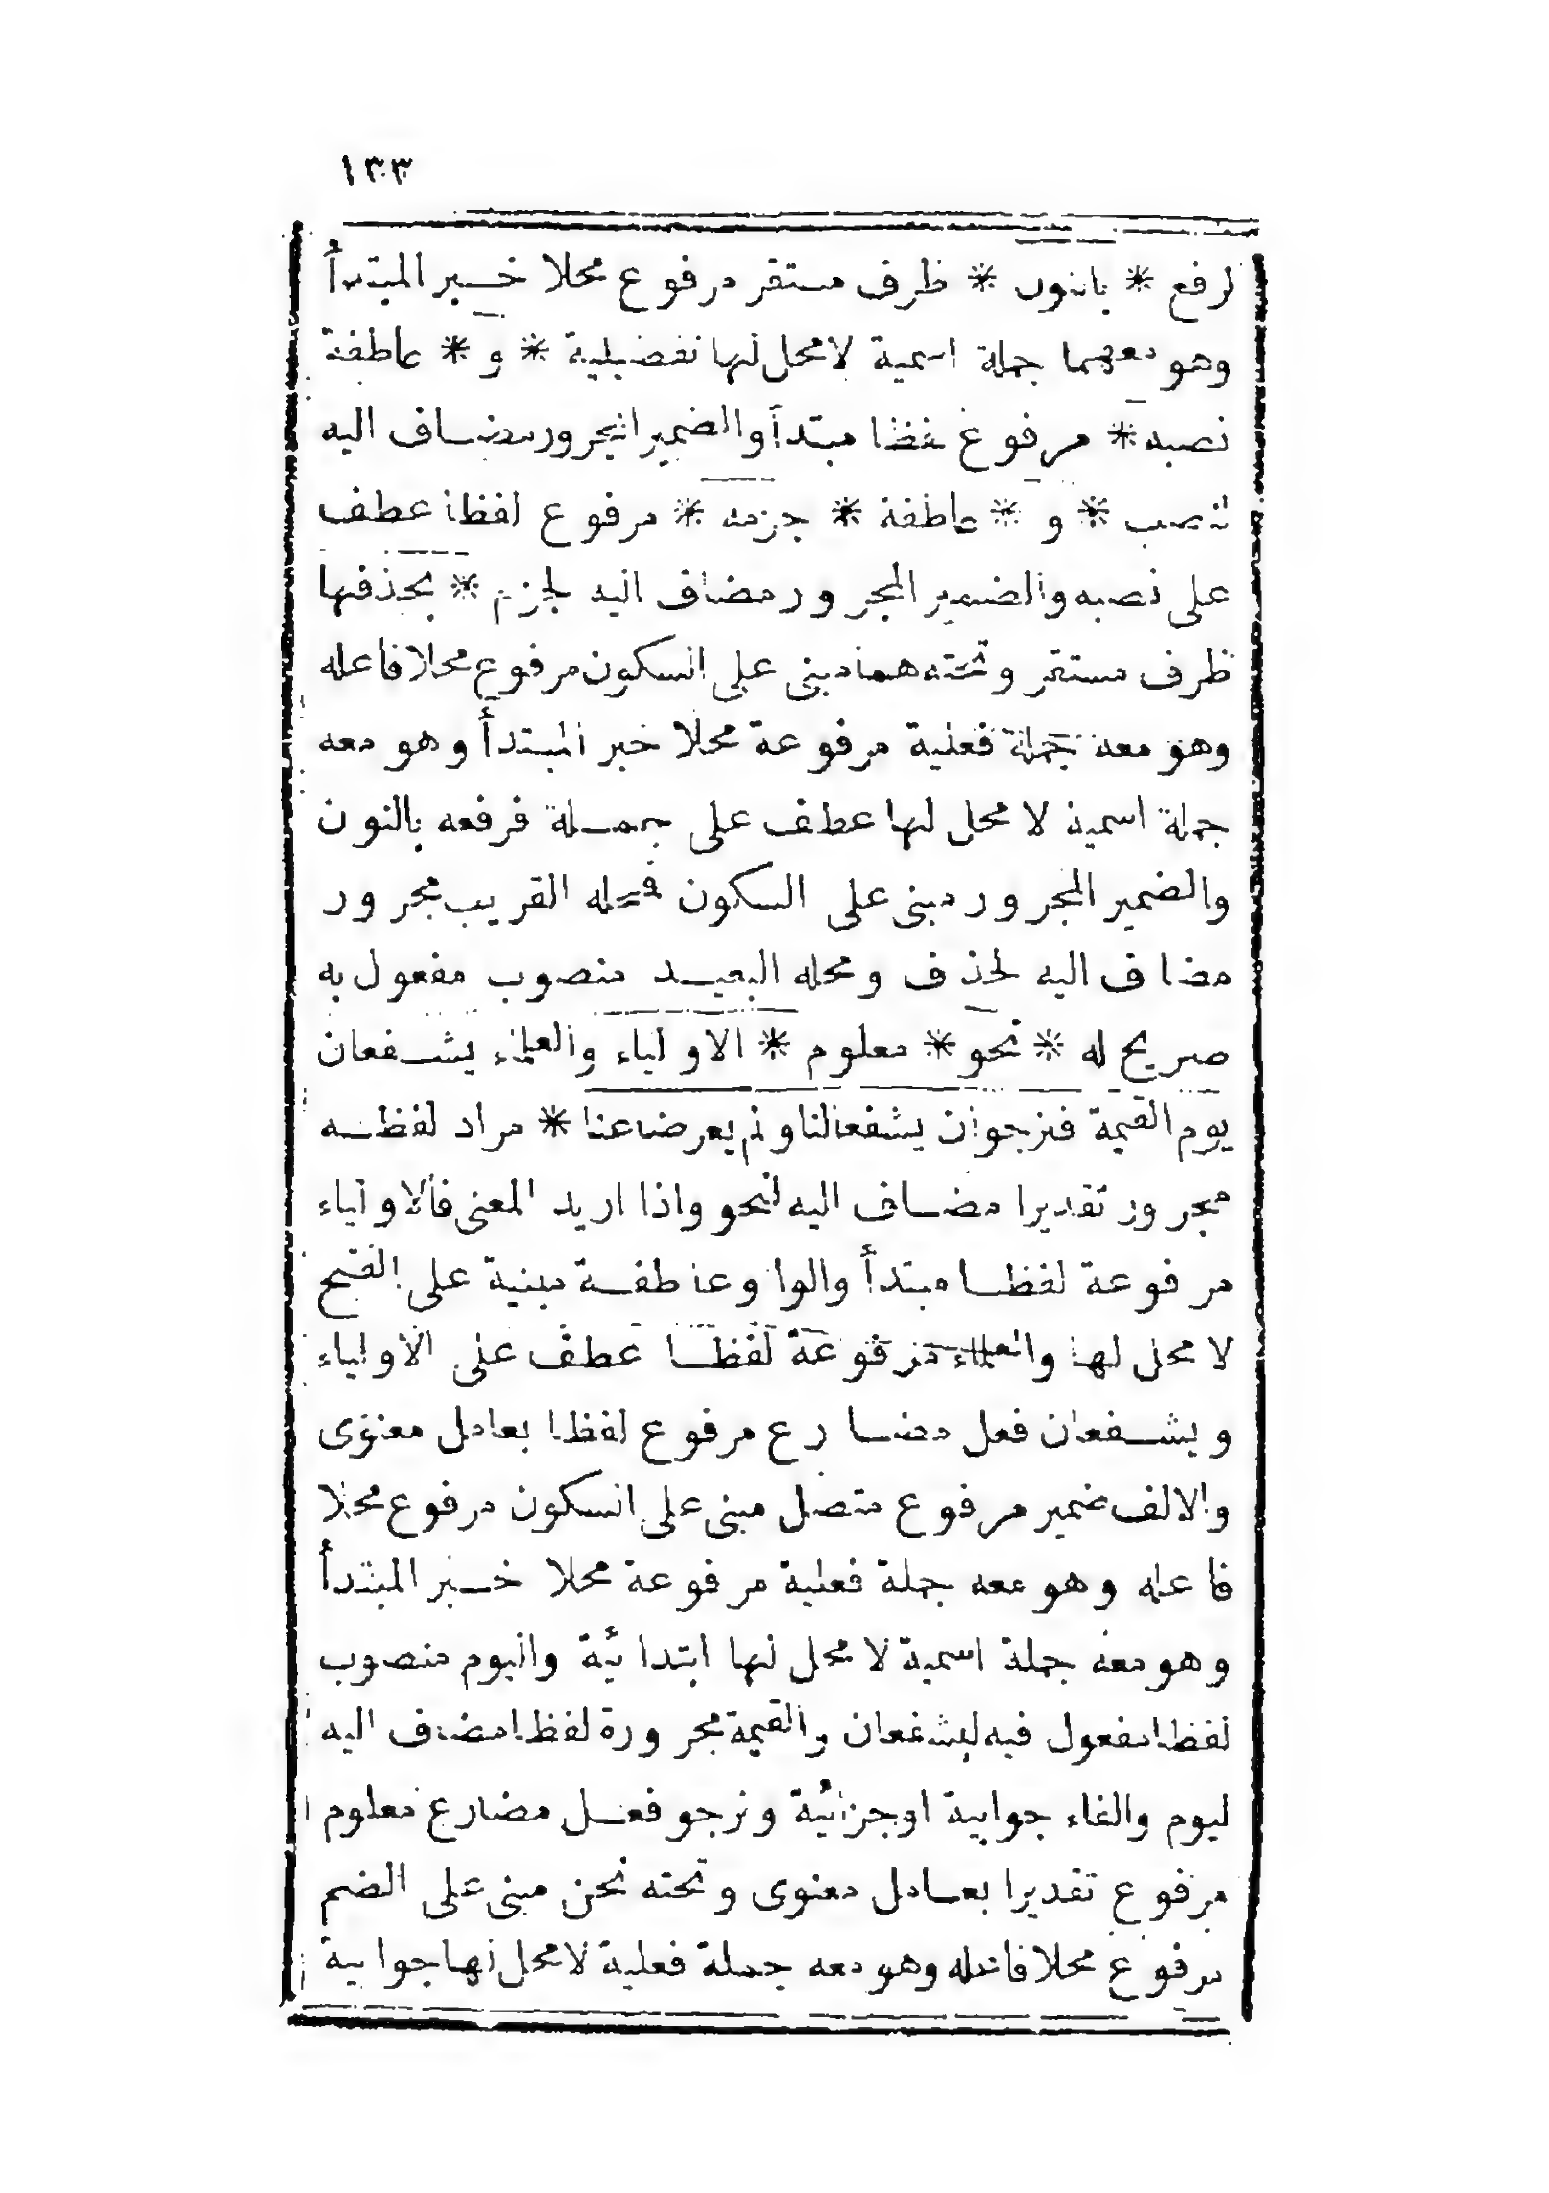 ١٣٣
لرفع * بالنون * ظرف مستقر مرفوع محلا خبر المبتدأ
وهو معهما جملة اسمية لا محل لها تفضيلية * و * عاطفة
نصبه * مرفوع لفظا مبتدأ والضمير المجرور مضاف اليه
لنصب * و * عاطفة * جزمه * مرفوع لفظا عطف
على نصبه والضمير المجرور مضاف اليه لجزم * بحذفها
ظرف مستقر وتحته هما مبنى على السكون مرفوع محلا فاعله
وهو معه جملة فعلية مرفوعة محلا خبر المبتدأ وهو معه
جملة اسمية لا محل لها عطف على جملة فرفعه بالنون
والضمير المجرور مبنى على السكون فمحله القريب مجرور
مضاف اليه لحذف ومحله البعيد منصوب مفعول به
صريح له * نحو * معلوم * الاولياء والعلماء يشفعان
يوم القيمة فنرجوان يشفعالنا ولم يعرضا عنا * مراد لفظه
مجرور تقديرا مضاف اليه لنحو واذا اريد المعنى فالاولياء
مرفوعة لفظا مبتدأ والواو عاطفة مبنية على الفتح
لا محل لها والعلماء مرفوعة لفظا عطف على الاولياء
ويشفعان فعل مضارع مرفوع لفظا بعامل معنوى
والالف ضمير مرفوع متصل مبنى على السكون مرفوع محلا
فاعله وهو معه جملة فعلية مرفوعة محلا خبر المبتدأ
وهو معه جملة اسمية لا محل لها ابتدائية واليوم منصوب
لفظا مفعول فيه ليشفعان والقيمة مجرورة لفظا مضاف اليه
ليوم والفاء جوابية او جزائية ونرجو فعل مضارع معلوم
مرفوع تقديرا بعامل معنوى وتحته نحن مبنى على الضم
مرفوع محلا فاعله وهو معه جملة فعلية لا محل لها جوابية